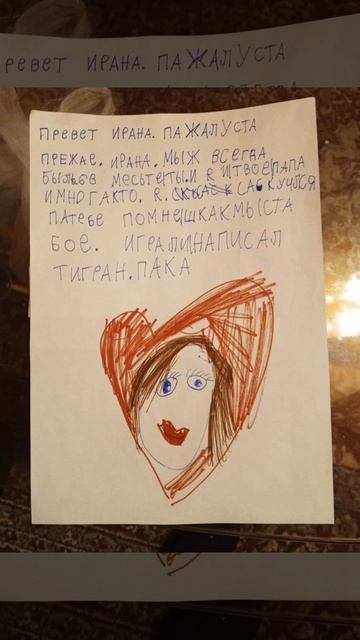 ревет ИРАНА. ПАЖАЛУСТА
ПРЕВЕТ ИРАНА. ПАЖАЛУСТА
ПРЕЖАЕ. ИРАНА. МЫЖ ВСЕГНА
БЫЛЬВ МЕСЬТЕ ТЫ.И R ИТВОЕПАПА
ИМНОГАКТО. R. САСКУЧЛСЯ
ПАТЕБЕ ПОМНЕШКАКМЫСТА
БОЕ. ИГРАЛИНАПИСАЛ
ТИГРАН.ПАКА